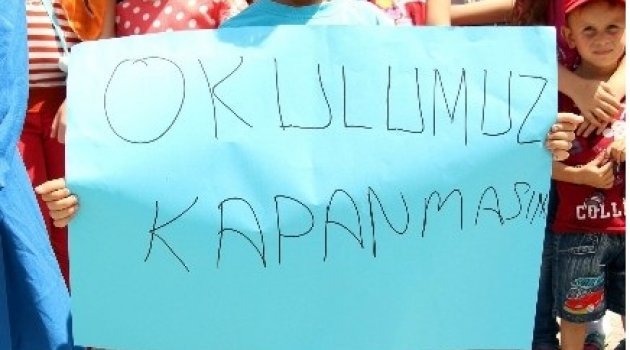 OKULUMUZ
KAPANMASIN
COLLE